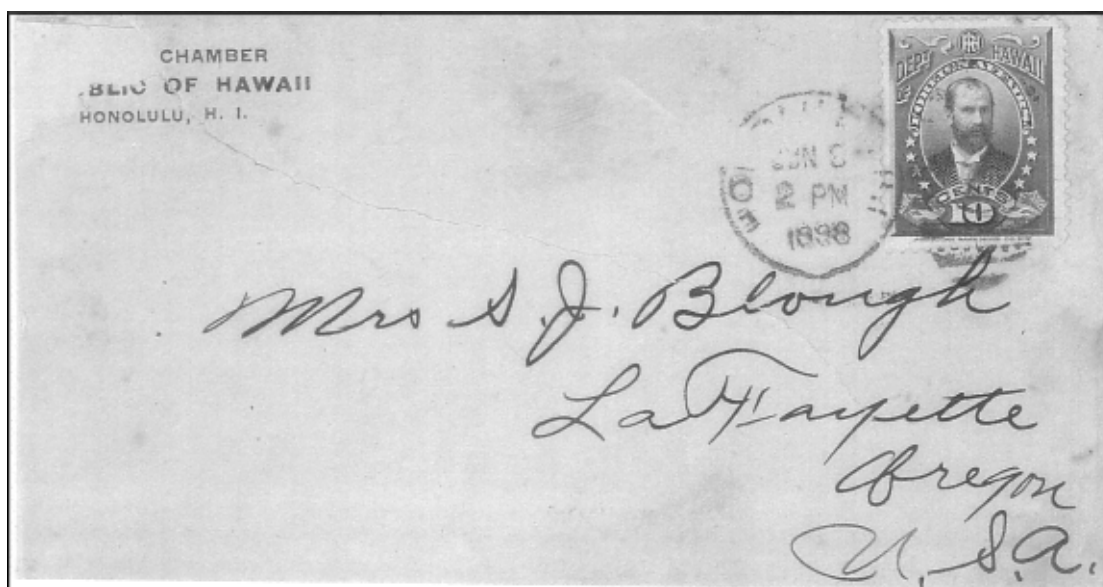 CHAMBER
BLIC OF HAWAII
HONOLULU, H. I.
DEPT HAWAII
OF FOREIGN AFFAIRS
CENTS
10
2 PM
1898
Mrs S. J. Blough
LaFayette
Oregon
U. S. A.